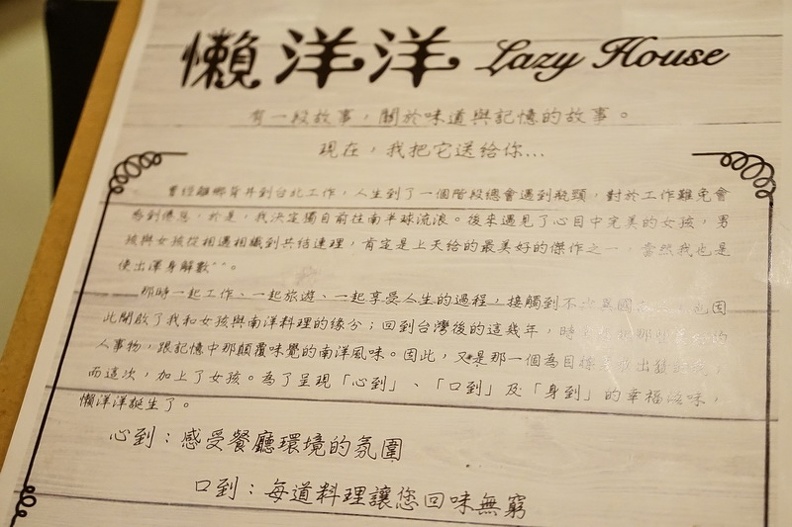 懶洋洋 Lazy House
有一段故事，關於味道與記憶的故事。
現在，我把它送給你...
曾經離鄉背井到台北工作，人生到了一個階段總會遇到瓶頸，對於工作難免會
感到倦怠，於是，我決定獨自前往南半球流浪。後來遇見了心目中完美的女孩，男
孩與女孩從相遇相識到共結連理，肯定是上天給的最美好的傑作之一，當然我也是
使出渾身解數^^。
那時一起工作、一起旅遊、一起享受人生的過程，接觸到不少異國 也因
此開啟了我和女孩與南洋料理的緣分；回到台灣後的這幾年，時 那 的
人事物，跟記憶中那顛覆味覺的南洋風味。因此，又是那一個為目標 出
而這次，加上了女孩。為了呈現「心到」、「口到」及「身到」的幸福滋味，
懶洋洋誕生了。
心到：感受餐廳環境的氛圍
口到：每道料理讓您回味無窮